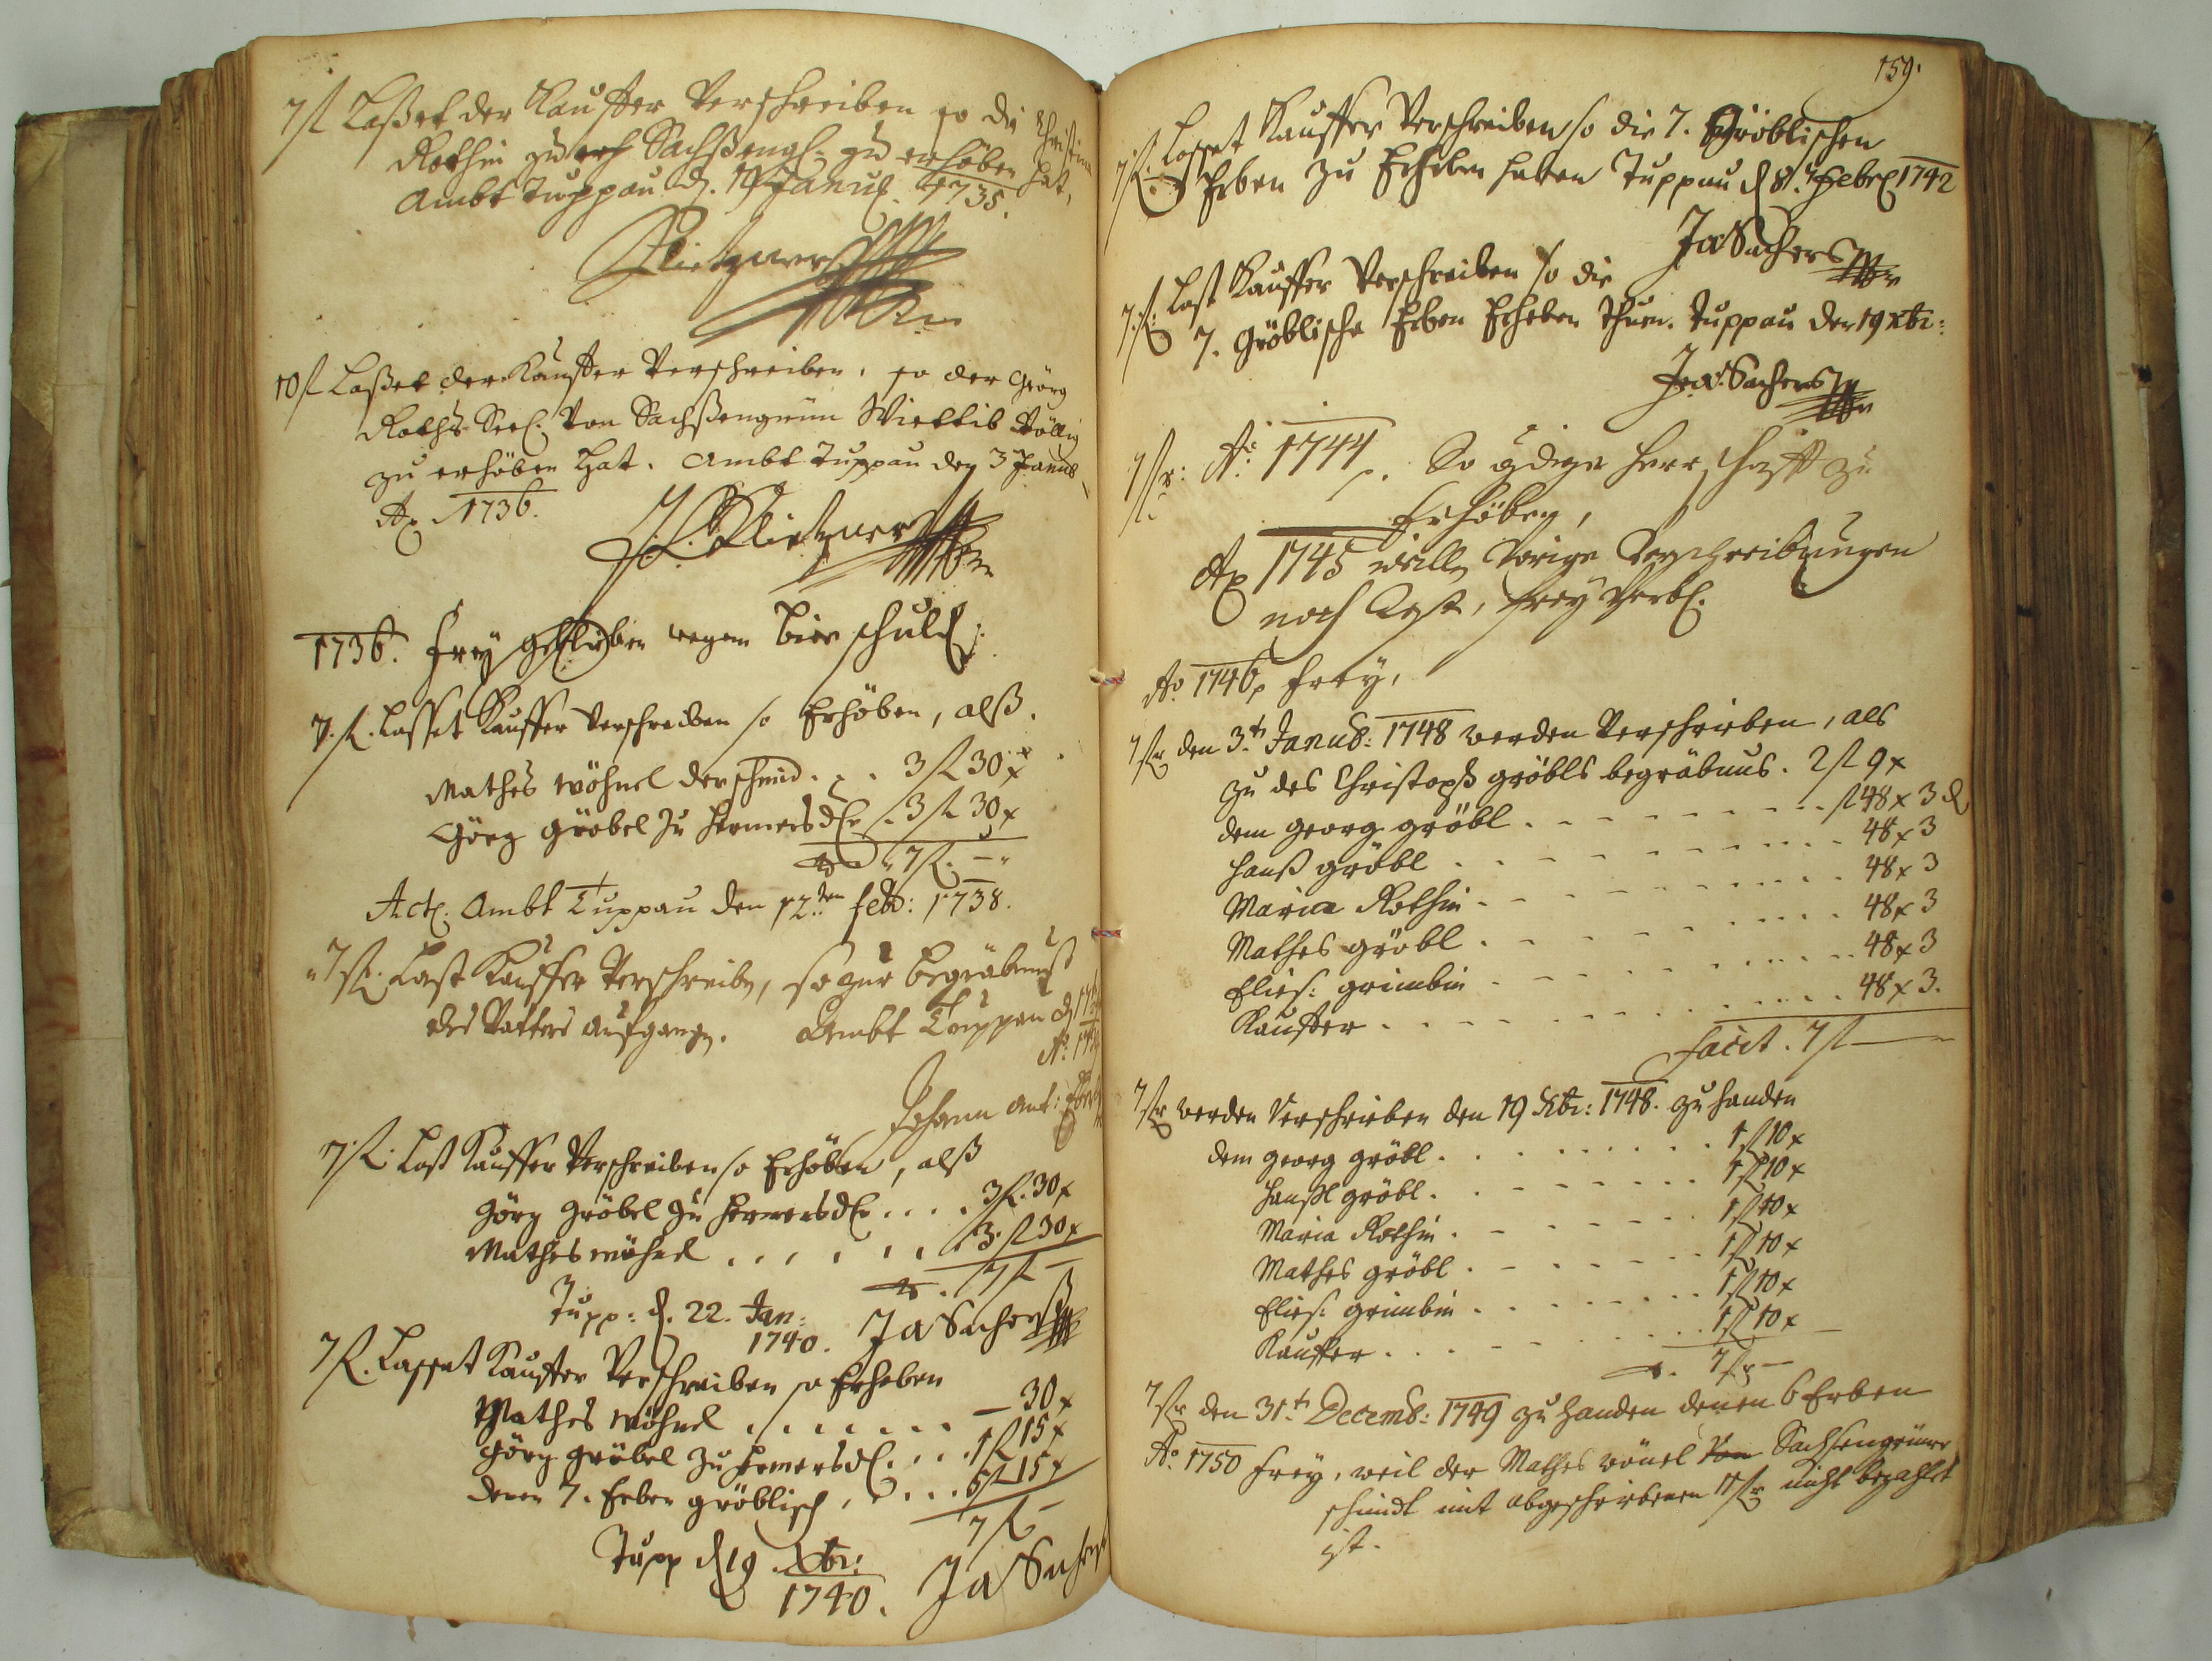 7 fl Laßet der Kauffer Verschreiben so die Christina
Rothin zu Sachßengl: zu erhöben hat,
Ambt Tuppau d. 14 Januar. 1735.
10 fl Laßet der Kauffer Verschreiben, so der Georg
Roths Seel. von Sachßengrün Wittib völlig
zu erhöben hat. Ambt Tuppau den 3 Januar
Ao 1736.
1736. frey geblieben wegen bier schuld.
7. fl. Lasset Kauffer Verschreiben so Erhöben, alß.
Mathes wöhnel der schmid . . . 3 fl 30 x
Görg Gröbel zu Hermersd. . 3 fl 30 x
7 fl. —
Act. Ambt Tuppau den 12ten feb: 1738.
7 fl. Last Kauffer Verschreiben, so zur Begräbnuß
des Vatters aufgangen. Ambt Tuppau d 17
Johann Ant:
7 fl: Last Kauffer Verschreiben so Erhöben, alß
Görg Gröbel zu Hermersd. . . . . 3 fl. 30 x
Mathes wöhnel . . . . . . . 3 fl 30 x
7 fl —
Tupp: d. 22. Jan:
1740. Ja Sachers
7 fl. Lasset Kauffer Verschreiben so Erheben
Mathes wöhnel . . . . . . . — 30 x
Görg Gröbel zu Hermersd. . . . 1 fl 15 x
denen 7. Erben gröblisch . . . . 5 fl 15 x
7 fl —
Tupp d 19 Xbr:
1740. Ja Sachers
159.
7 fl. Losset Kauffer Verschreiben so die 7. Gröblischen
Erben zu Erheben haben Tuppau d 8t. Febr 1742
Ja Sachers
7. fl: Last Kauffer Verschreiben so die
7. Gröblische Erben Erheben thuen. Tuppau den 19 Xbr:
Ja: Sachers
7 fl: Ao: 1744 . So gdige Herrschafft zu
Erhöben,
Ao 1745 weillen Vorige Verschreibungen
noch Rest, frey Verbl.
Ao. 1746 frey,
7 fl den 3.t Janua: 1748 werden Verschrieben, als
zu des Christoph gröbls begräbnus . 2 fl 9 x
dem georg gröbl . . . . . . . . . fl 48 x 3 d
Hanß gröbl . . . . . . . . . . 48 x 3
Maria Rothin . . . . . . . . . 48 x 3
Mathes gröbl . . . . . . . . . 48 x 3
Elis: grimbin . . . . . . . . . 48 x 3
Kauffer . . . . . . . . . . 48 x 3.
facit . 7 fl —
7 fl werden Verschrieben den 19 Xbr: 1748. zu handen
dem georg gröbl . . . . . . . . . 1 fl 10 x
Hanßl gröbl . . . . . . . . . 1 fl 10 x
Maria Rothin . . . . . . . . 1 fl 10 x
Mathes gröbl . . . . . . . . 1 fl 10 x
Elis: grimbin . . . . . . . . 1 fl 10 x
Kauffer . . . . . . . . . . 1 fl 10 x
7 fl —
7 fl den 31.t Decemb: 1749 zu handen denen 6 Erben
Ao. 1750 frey, weil der Mathes wönel Von Sachsengrüner
schmidt mit abgeschriebenen 11 fl nicht bezahlt
ist.